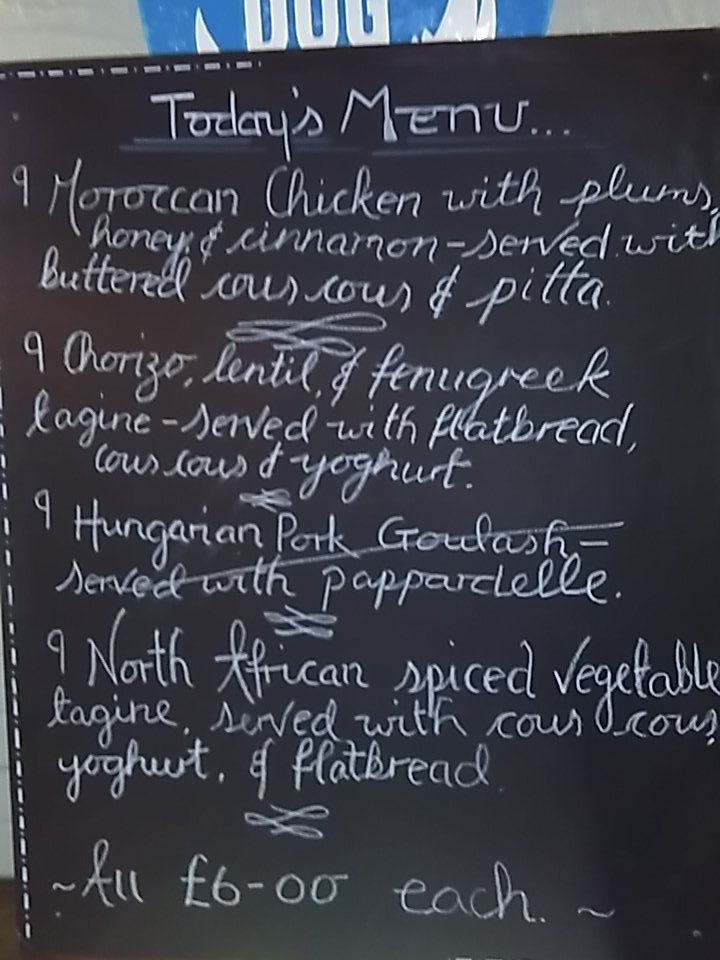 DOG
Today's Menu...
9 Moroccan Chicken with plums,
honey, & cinnamon - served with
Buttered cous cous & pitta.
9 Chorizo, lentil, & fenugreek
tagine - served with flatbread,
cous cous & yoghurt.
9 Hungarian Pork Goulash -
served with pappardelle.
9 North African spiced vegetable
tagine, served with cous cous,
yoghurt, & flatbread
~All £6-00 each. ~